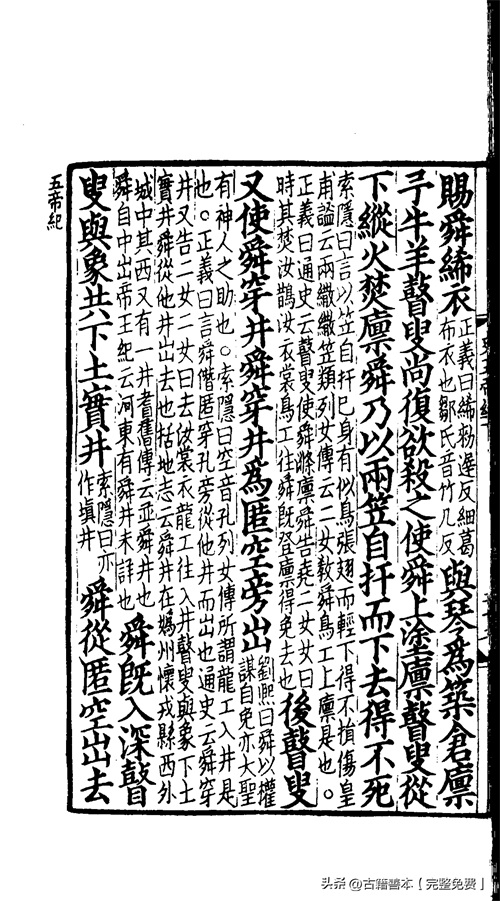 賜舜絺衣
正義曰絺勑遲反細葛
布衣也鄒氏音竹几反
與琴爲築倉廩
予牛羊瞽叟尚復欲殺之使舜上塗廩瞽叟從
下縱火焚廩舜乃以兩笠自扞而下去得不死
索隱曰言以笠自扞己身有似鳥張翅而輕下得不損傷皇
甫謐云兩繖繖笠類列女傳云二女敎舜鳥工上廩是也。
正義曰通史云瞽叟使舜滌廩舜告堯二女二女曰
時其焚汝鵲汝衣裳鳥工往舜既登廩得免去也
後瞽叟
又使舜穿井舜穿井爲匿空旁出
劉熙曰舜以權
謀自免亦大聖
有神人之助也。索隱曰空音孔列女傳所謂龍工入井是
也。正義曰言舜潛匿穿孔旁從他井而出也通史云舜穿
井又告二女二女曰去汝裳衣龍工往入井瞽叟與象下土
實井舜從他井出去也括地志云舜井在媯州懷戎縣西外
城中其西又有一井耆舊傳云並舜井也
舜自中出帝王紀云河東有舜井未詳也
舜既入深瞽
叟與象共下土實井
索隱曰亦
作塡井
舜從匿空出去
五帝紀
头条 @古籍善本【完整免费】